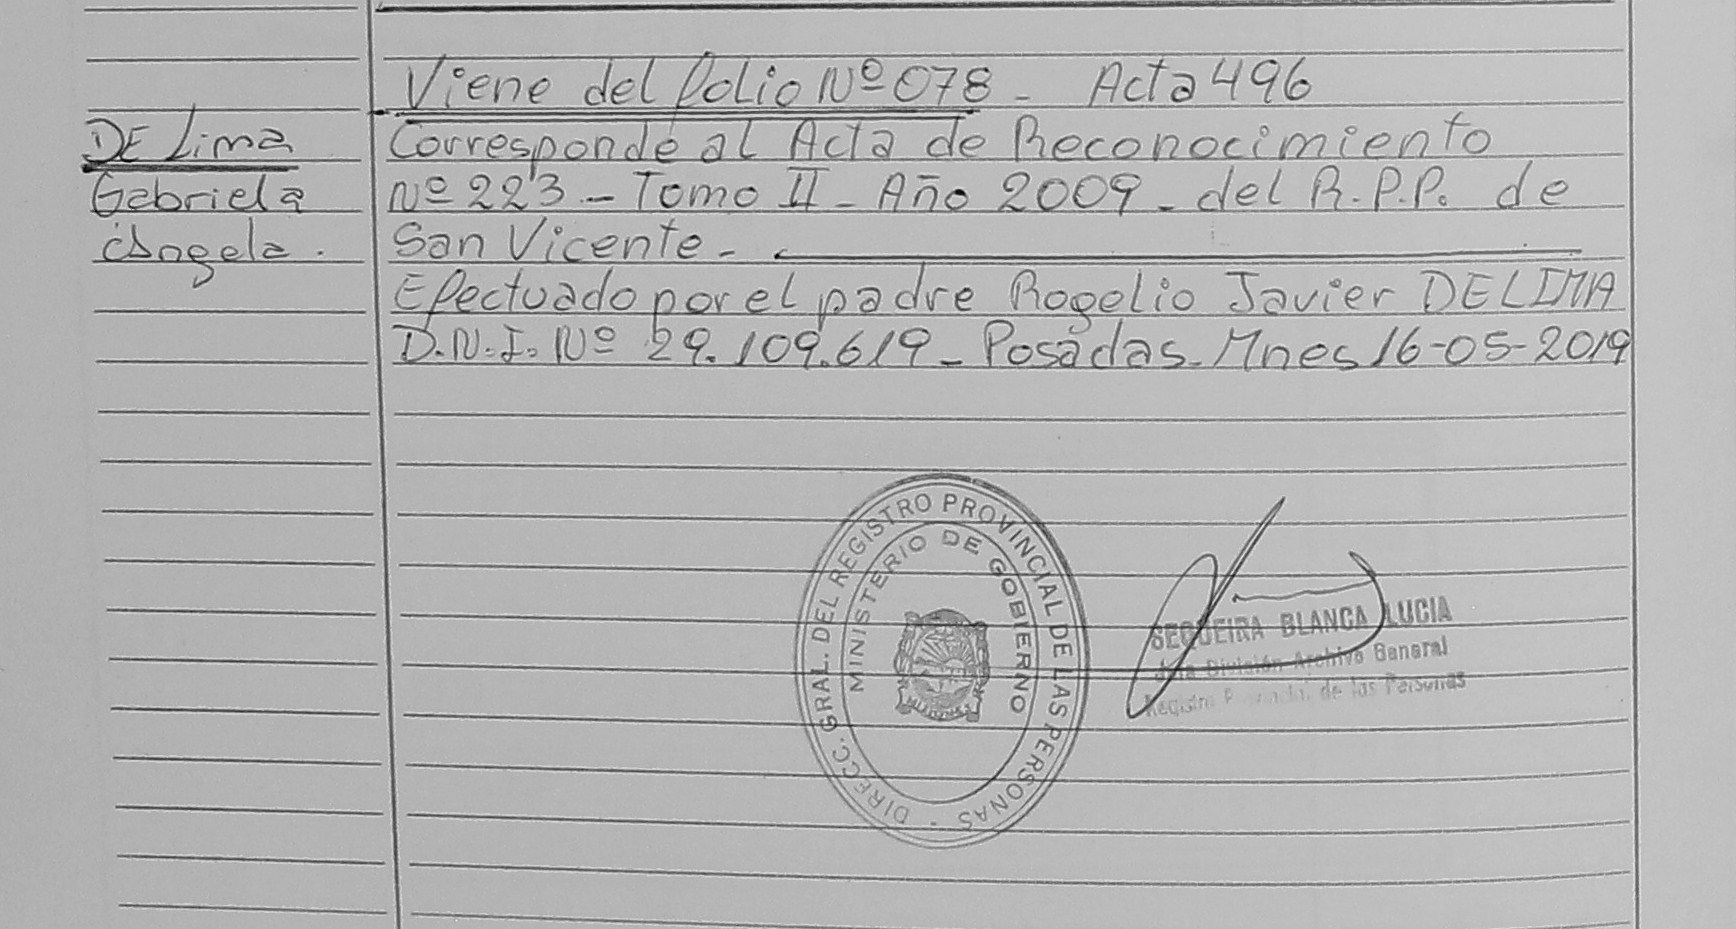 Viene del folio Nº 078 - Acta 496
DE Lima
Gabriela
Angela.
Corresponde al Acta de Reconocimiento
Nº 223 - Tomo II - Año 2009 - del R.P.P. de
San Vicente -
Efectuado por el padre Rogelio Javier DE LIMA
D.N.I. Nº 29.109.619 - Posadas - Mnes 16-05-2019
DIRECC. GRAL. DEL REGISTRO PROVINCIAL DE LAS PERSONAS -
MINISTERIO DE GOBIERNO
SEQUEIRA BLANCA LUCIA
División Archivo General
Registro de las Personas